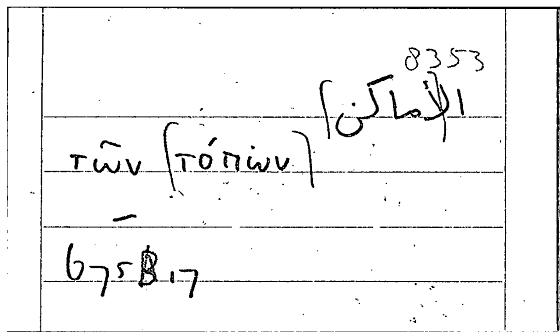 8353
ال(أماكن)
τῶν (τόπων)
675B17